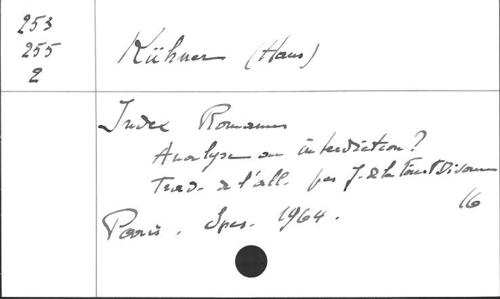 253
255
2
Kühner (Hans)
Index Romanus
Analyse ou interdiction?
Trad. de l'all. par J. de la Tour
Paris. Spes. 1964.
16